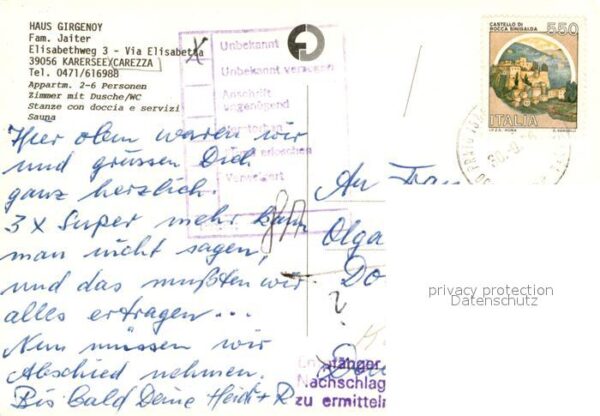 HAUS GIRGENOY
Fam. Jaiter
Elisabethweg 3 - Via Elisabetta
39056 KARERSEE/CAREZZA
Tel. 0471/616988
Appartm. 2-6 Personen
Zimmer mit Dusche/WC
Stanze con doccia e servizi
Sauna
Unbekannt
Unbekannt verzogen
Anschrift
ungenügend
erloschen
Verweigert
CASTELLO DI
ROCCA SINIBALDA
550
ITALIA
Hier oben waren wir
und grüssen Dich
ganz herzlich.
3 x Super mehr kann
man nicht sagen,
und das mußten wir
alles ertragen...
Nun müssen wir
Abschied nehmen.
Bis bald Deine Heidi + R
An Frau
Olga
Do
?
privacy protection
Datenschutz
Empfänger
Nachschlag
zu ermitteln